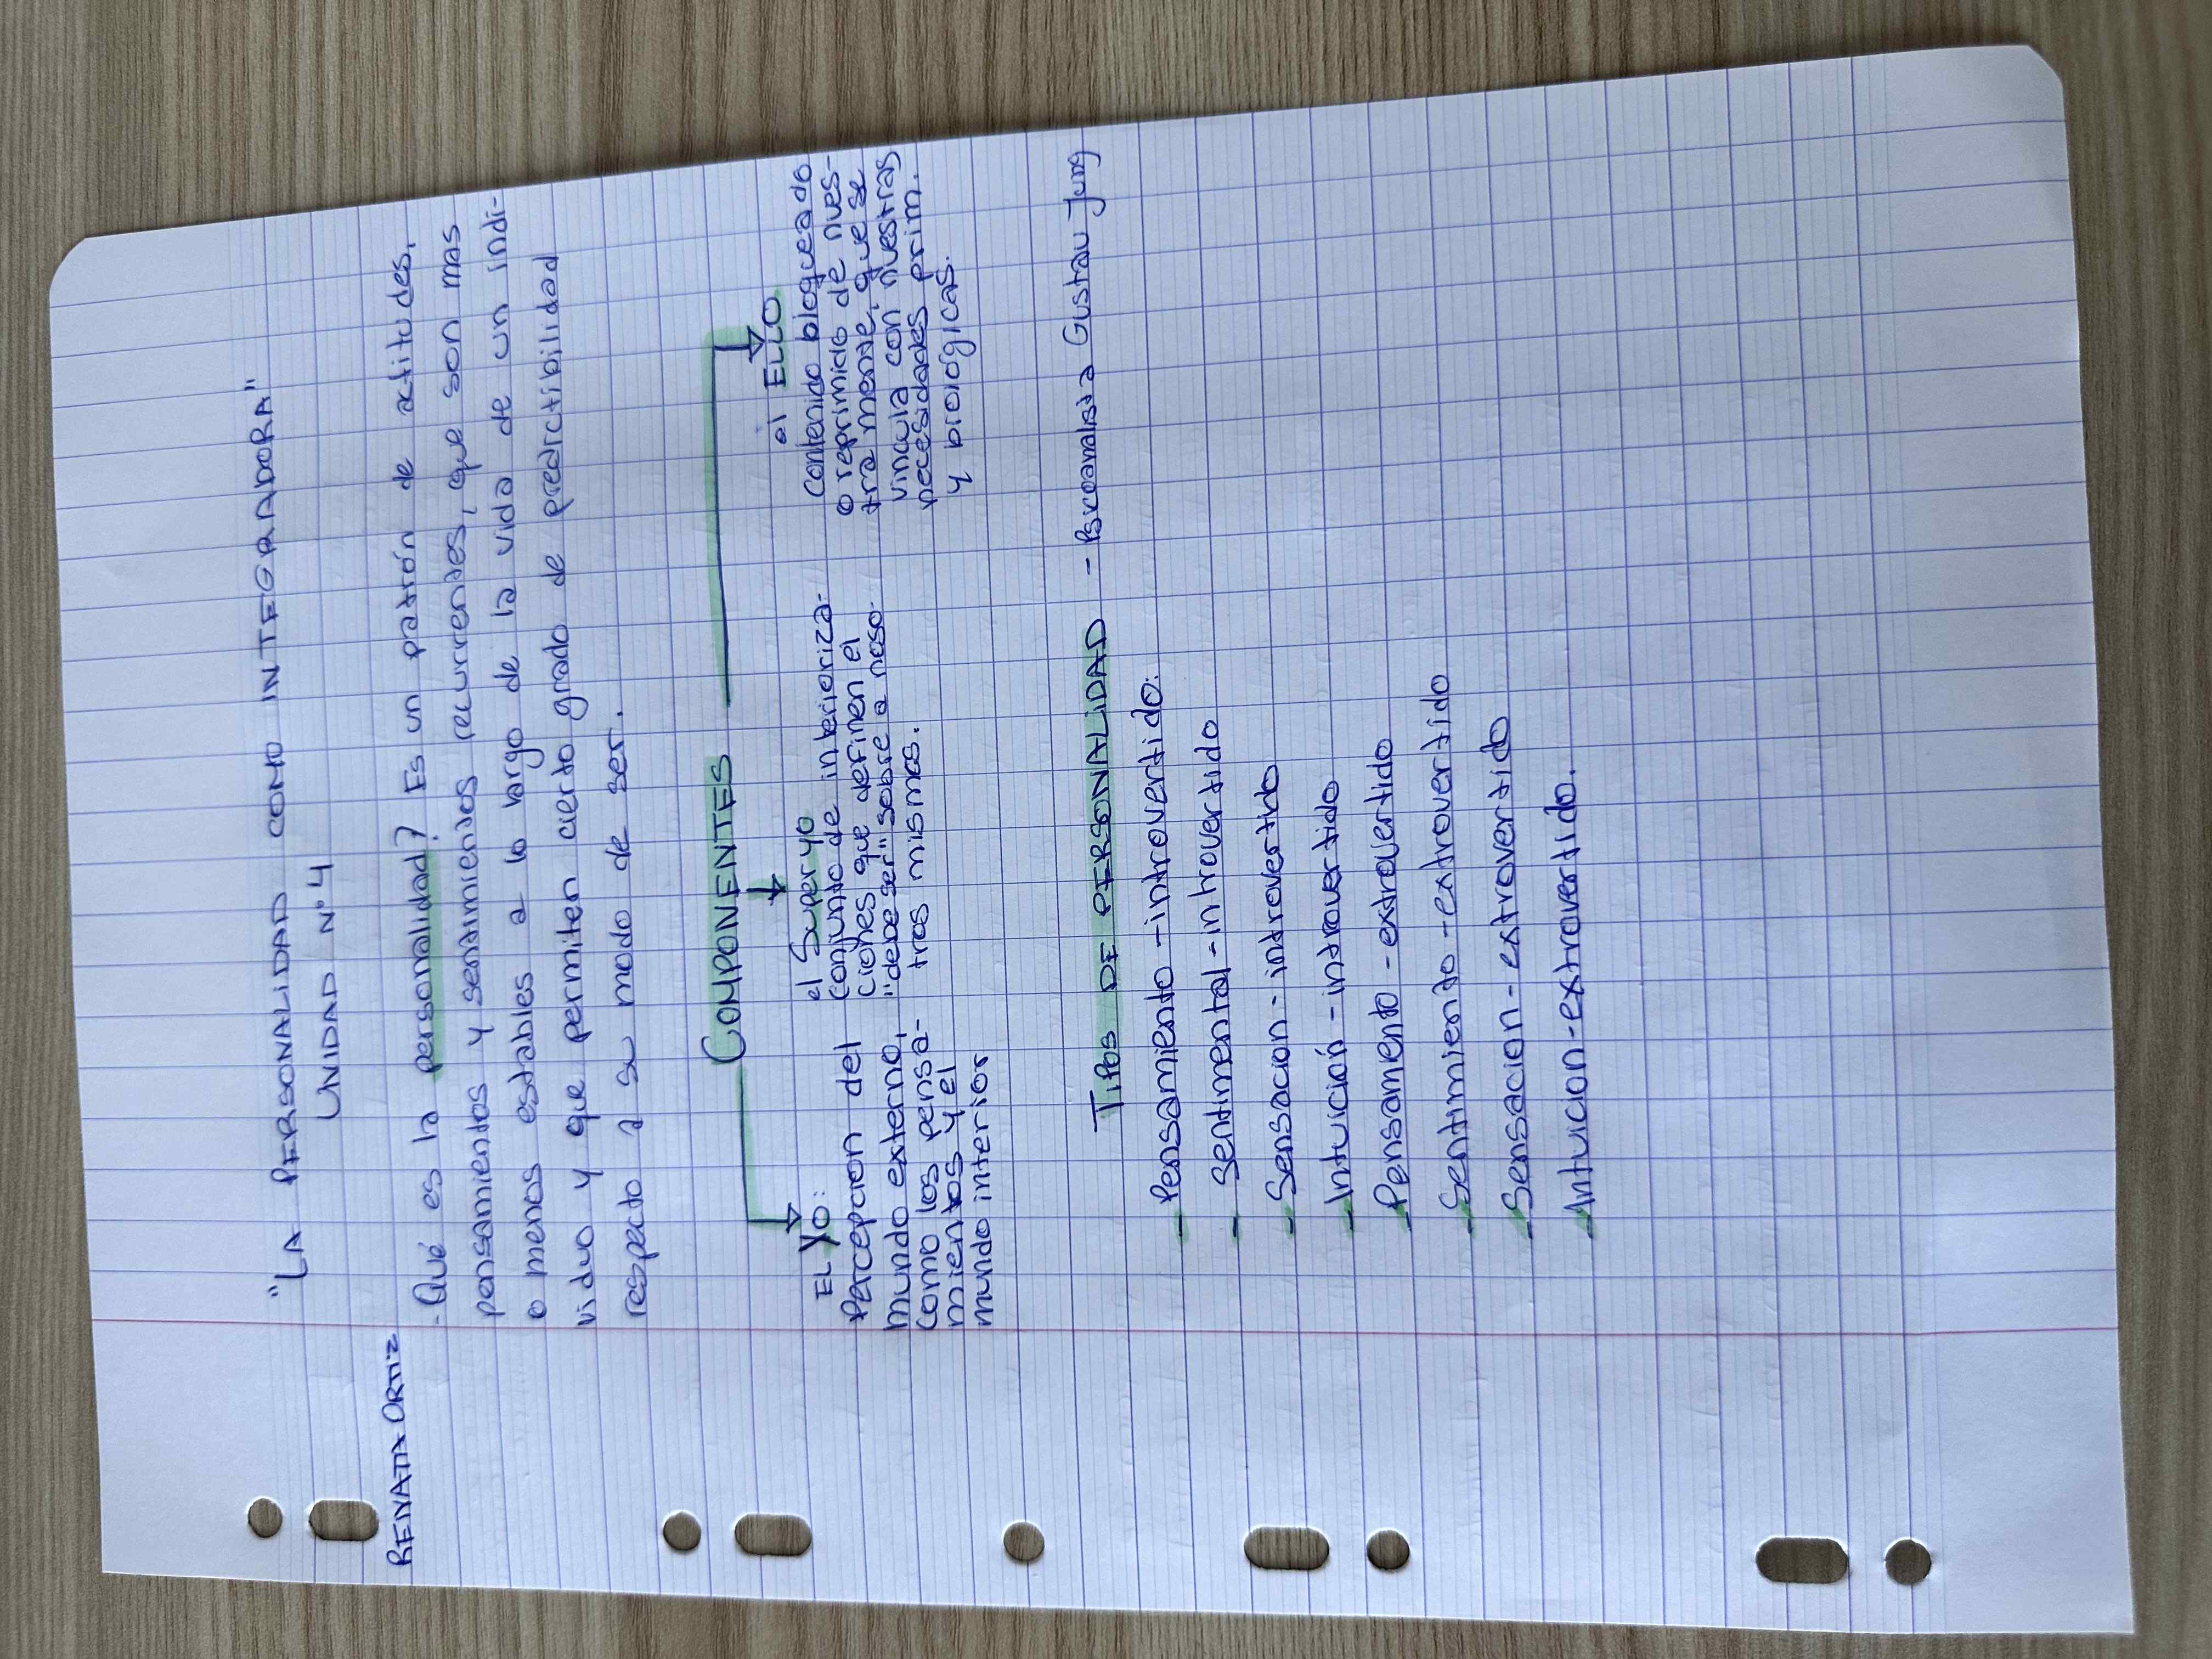 "LA PERSONALIDAD COMO INTEGRADORA"
UNIDAD Nº4
RENATA ORTIZ
- Qué es la personalidad? Es un patrón de actitudes,
pensamientos y sentimientos recurrentes, que son mas
o menos estables a lo largo de la vida de un indi-
viduo y que permiten cierto grado de predictibilidad
respecto a su modo de ser.
COMPONENTES
EL YO:
Percepcion del
mundo externo,
como los pensa-
mientos y el
mundo interior
el Super yo
conjunto de interioriza-
ciones que definen el
"debe ser" sobre a noso-
tros mismos.
el ELLO
contenido bloqueado
o reprimido de nues-
tra mente, que se
vincula con nuestras
necesidades prim.
y biológicas.
TIPOS DE PERSONALIDAD - Psicoanalista Gustav Jung
- Pensamiento - introvertido:
- Sentimental - introvertido
- Sensacion - introvertido
- Intuición - introvertido
- Pensamento - extrovertido
- Sentimiento - extrovertido
- Sensacion - extrovertido
- Intuicion - extrovertido.